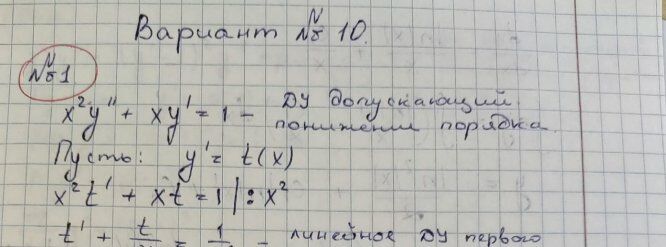 Вариант № 10.
№1
x²y" + xy' = 1 – ДУ допускающий
понижении порядка
Пусть: y' = t(x)
x²t' + xt = 1 | : x²
t' + t/ = 1/ – линейное ДУ первого